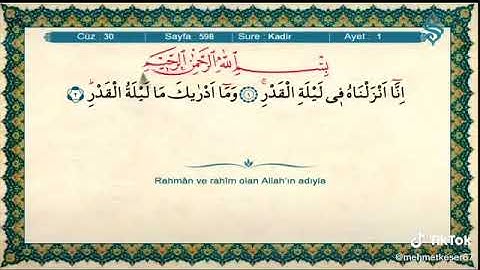 Cüz : 30 Sayfa : 598 Sure : Kadir Ayet : 1
بِسْــمِ اللّٰهِ الرَّحْمٰنِ الرَّحٖيمِ
اِنَّٓا اَنْزَلْنَاهُ فٖي لَيْلَةِ الْقَدْرِۚ ﴿١﴾ وَمَٓا اَدْرٰيكَ مَا لَيْلَةُ الْقَدْرِۜ ﴿٢﴾
Rahmân ve rahîm olan Allah'ın adıyla
TikTok
@mehmetkeser67